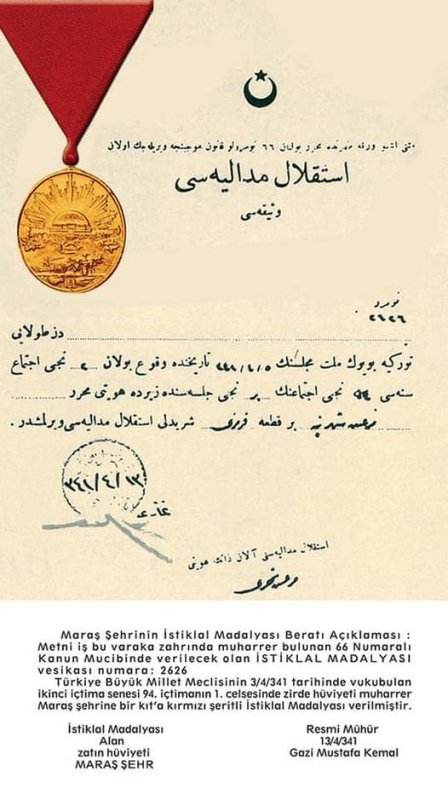 متنى اشبو ورقه ظهرنده محرر بولنان ٦٦ نومرولو قانون موجبنجه ويريله جك اولان
استقلال مداليه سى
وثيقه سى
نومرو
٢٦٢٦
دن طولايى
توركيه بويوك ملت مجلسنك ٣٤١/٤/٥ تاريخنده وقوع بولان ٢ نجى اجتماع
سنه سى نجى اجتماعنك بر نجى جلسه سنده زيرده هويتى محرر
مرعش شهرينه بر قطعه قرمزى شريدلى استقلال مداليه سى ويرلمشدر.
٣٤١/٤/١٣
غازى
استقلال مداليه سى آلان ذاتك هويتى
مرعش شهرى
Maraş Şehrinin İstiklal Madalyası Beratı Açıklaması :
Metni iş bu varaka zahrında muharrer bulunan 66 Numaralı
Kanun Mucibinde verilecek olan İSTİKLAL MADALYASI
vesikası numara: 2626
Türkiye Büyük Millet Meclisinin 3/4/341 tarihinde vukubulan
ikinci içtima senesi 94. içtimanın 1. celsesinde zirde hüviyeti muharrer
Maraş şehrine bir kıt'a kırmızı şeritli İstiklal Madalyası verilmiştir.
İstiklal Madalyası
Alan
zatın hüviyeti
MARAŞ ŞEHR
Resmi Mühür
13/4/341
Gazi Mustafa Kemal